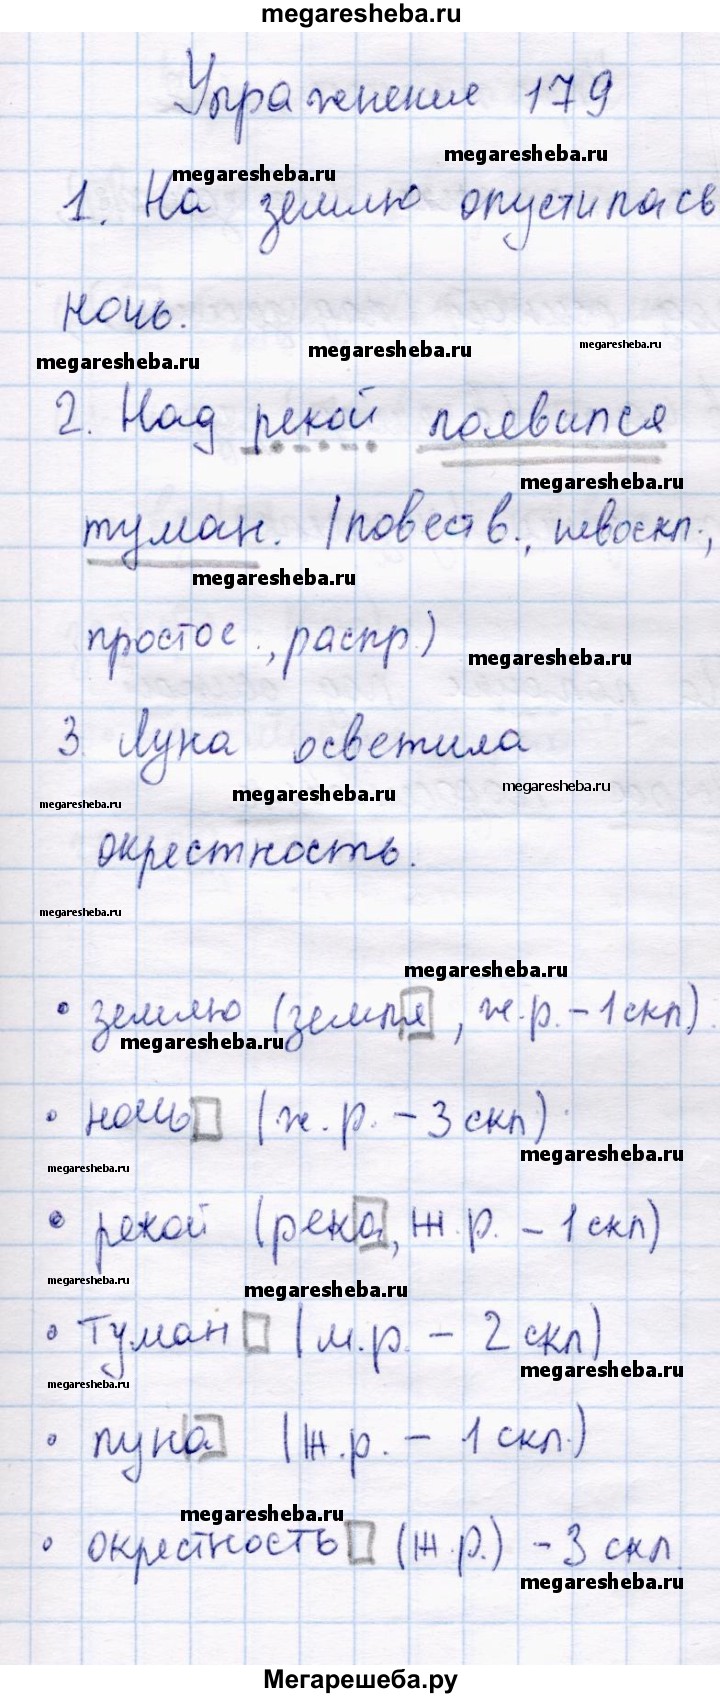 megaresheba.ru
Упражнение 179
megaresheba.ru
megaresheba.ru
1. На землю опустилась
ночь.
megaresheba.ru
megaresheba.ru
megaresheba.ru
2. Над рекой появился
megaresheba.ru
туман. (повеств., невоскл.,
megaresheba.ru
простое, распр.)
megaresheba.ru
3. Луна осветила
megaresheba.ru
megaresheba.ru
megaresheba.ru
окрестность.
megaresheba.ru
megaresheba.ru
• землю (земля, ж.р. – 1 скл)
megaresheba.ru
• ночь (ж.р. – 3 скл)
megaresheba.ru
megaresheba.ru
• рекой (река, ж.р. – 1 скл)
megaresheba.ru
megaresheba.ru
• туман (м.р. – 2 скл)
megaresheba.ru
megaresheba.ru
• луна (ж.р. – 1 скл.)
megaresheba.ru
• окрестность (ж.р.) – 3 скл.
megaresheba.ru
Мегарешеба.ру